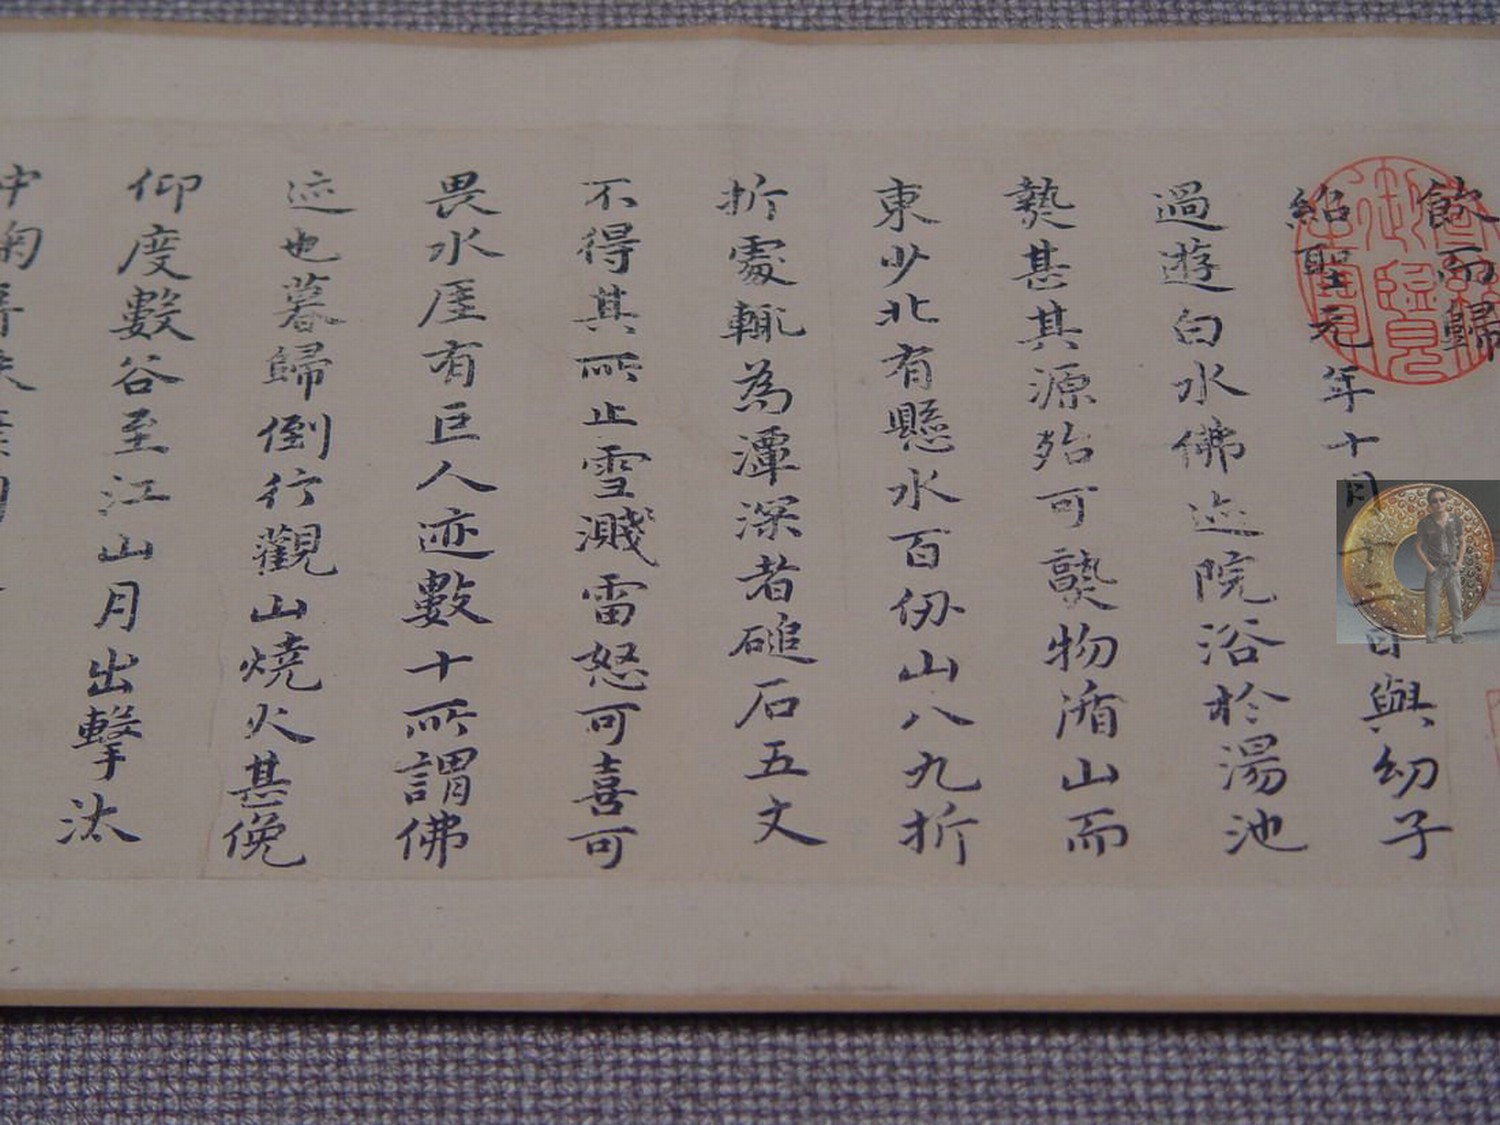 飲而歸
紹聖元年十月十二日與幼子
過遊白水佛迹院浴於湯池
𤍠甚其源殆可𤍠物循山而
東少北有懸水百仞山八九折
折處輒為潭深者磓石五丈
不得其所止雪濺雷怒可喜可
畏水厓有巨人迹數十所謂佛
迹也暮歸倒行觀山燒火甚俛
仰度數谷至江山月出擊汰
中